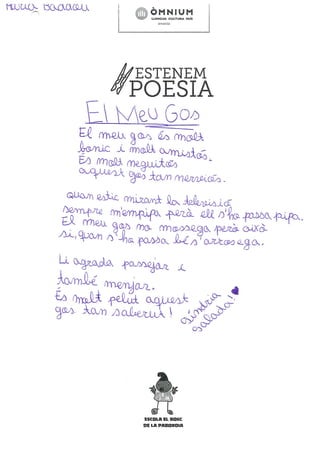 Núria Badaou
ÒMNIUM
LLENGUA CULTURA PAÍS
ESTENEM
POESIA
El Meu Gos
El meu gos és molt
bonic i molt amistós.
És molt neguitós
aquest gos tan nerviós.
Quan estic mirant la televisió
sempre m'empipa però ell s'ho passa pipa.
El meu gos no mossega però això
si, quan s'ho passa bé s'arrosega.
Li agrada passejar i
també menjar.
És molt pelut aquest
gos tan saberut!
Síndria
salada!
ESCOLA EL BOSC
DE LA PABORDIA